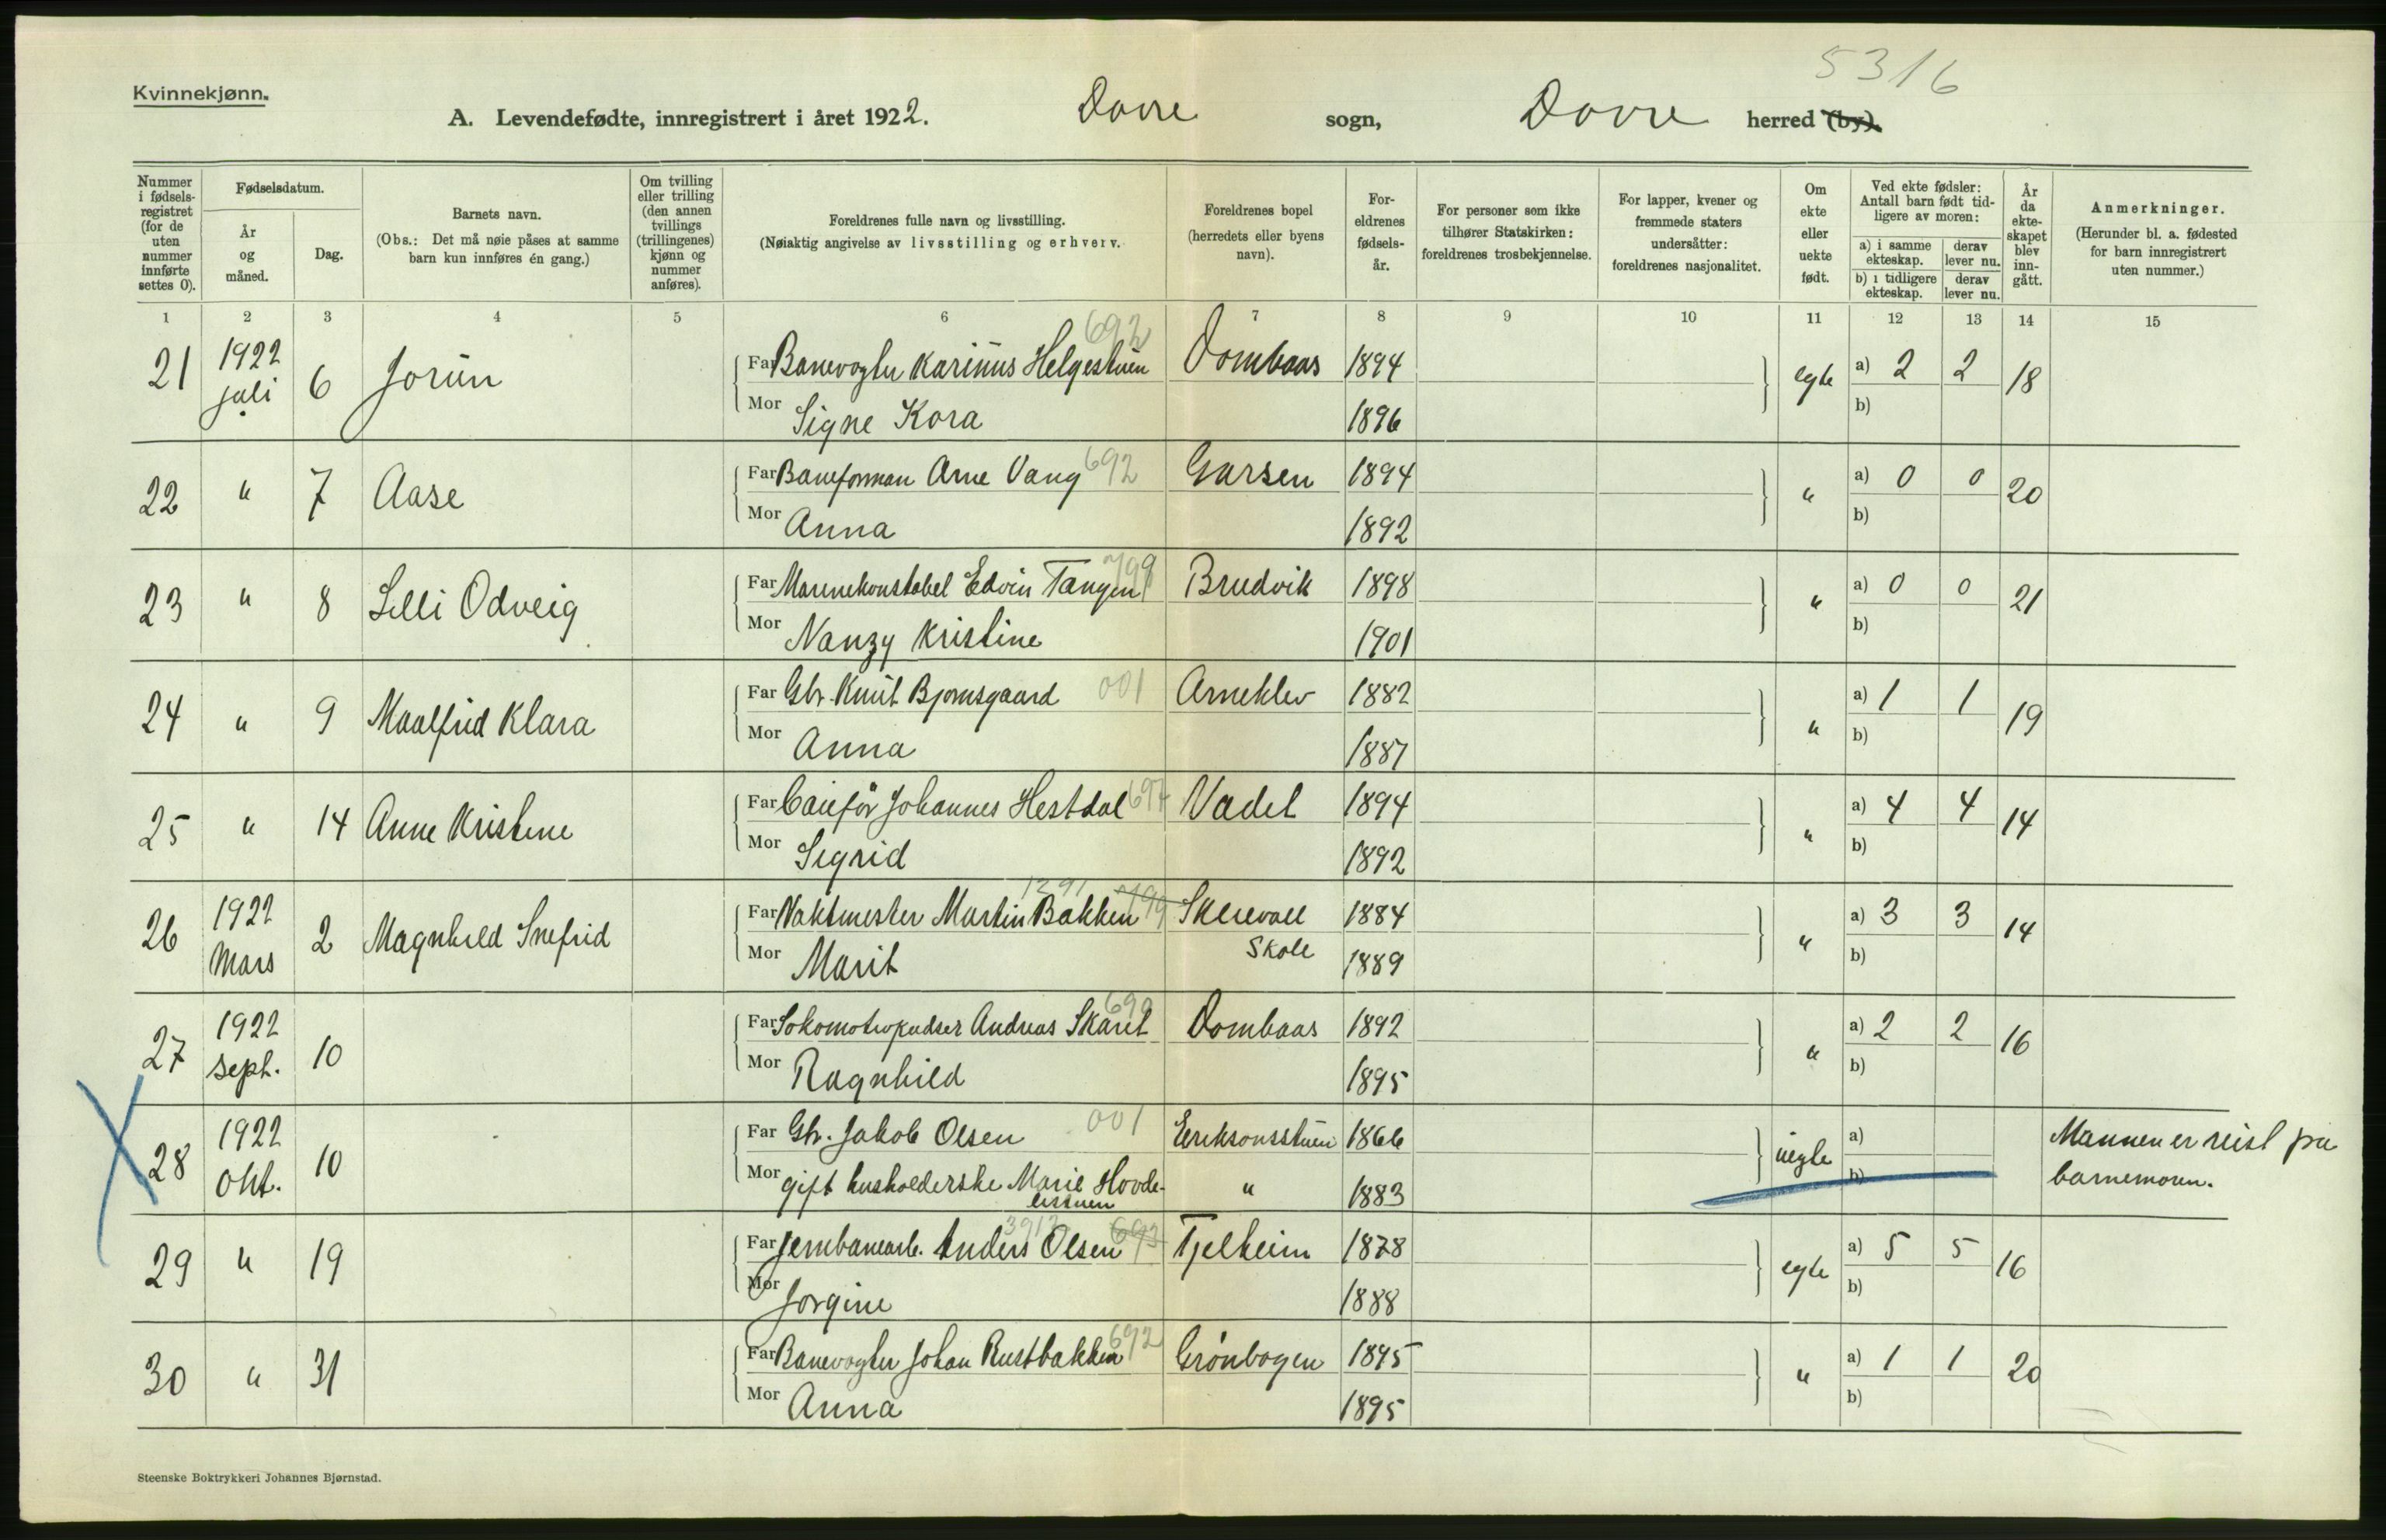 5316
Kvinnekjønn.
A. Levendefødte, innregistrert i året 1922. Dovre sogn, Dovre herred (by).
Nummer i fødsels-registret (for de uten nummer innførte settes 0).
Fødselsdatum.
År og måned.
Dag.
Barnets navn.
(Obs.: Det må nøie påses at samme barn kun innføres én gang.)
Om tvilling eller trilling (den annen tvillings (trillingenes) kjønn og nummer anføres).
Foreldrenes fulle navn og livsstilling.
(Nøiaktig angivelse av livsstilling og erhverv.
Foreldrenes bopel (herredets eller byens navn).
For-eldrenes fødsels-år.
For personer som ikke tilhører Statskirken: foreldrenes trosbekjennelse.
For lapper, kvener og fremmede staters undersåtter: foreldrenes nasjonalitet.
Om ekte eller uekte født.
Ved ekte fødsler: Antall barn født tid-ligere av moren:
a) i samme ekteskap. derav lever nu.
b) i tidligere ekteskap. derav lever nu.
År da ekte-skapet blev inn-gått.
Anmerkninger.
(Herunder bl. a. fødested for barn innregistrert uten nummer.)
1 2 3 4 5 6 7 8 9 10 11 12 13 14 15
21 1922 juli 6 Jorün Far Banevogter Karinus Helgestuen 692 Dombaas 1894 egte a) 2 2 18
Mor Signe Kora 1896 b)
22 " 7 Aase Far Baneforman Arne Vang 692 Garsen 1894 " a) 0 0 20
Mor Anna 1892 b)
23 " 8 Lilli Odveig Far Marinekonstabel Edvin Tangen 799 Brudvik 1898 " a) 0 0 21
Mor Nanzy Kristine 1901 b)
24 " 9 Maalfrid Klara Far Gbr. Knut Bjornsgaard 001 Arneklev 1882 " a) 1 1 19
Mor Anna 1887 b)
25 " 14 Anne Kristine Far Johannes Hestdal Vadet 1894 " a) 4 4 14
Mor Sigrid 1892 b)
26 1922 Mars 2 Magnhild Snefrid Far Vaktmester Martin Bakken 1291 799 Skole 1884 " a) 3 3 14
Mor Marit 1889 b)
27 1922 Sept. 10 Far Lokomotivpudser Andreas Skaret 699 Dombaas 1892 " a) 2 2 16
Mor Ragnhild 1895 b)
28 1922 Okt. 10 Far Gbr. Jakob Olsen 001 Eeriksonsstuen 1866 uegte a) Mannen er reist fra
Mor gift husholderske Marie Hovde- " 1883 b) barnemoren.
29 " 19 Far Jernbanearb. Anders Olsen Tjelheim 1878 egte a) 5 5 16
Mor Jorgine 1888 b)
30 " 31 Far Banevogter Johan Rustbakken 692 Grønbogen 1895 " a) 1 1 20
Mor Anna 1895 b)
Steenske Boktrykkeri Johannes Bjørnstad.